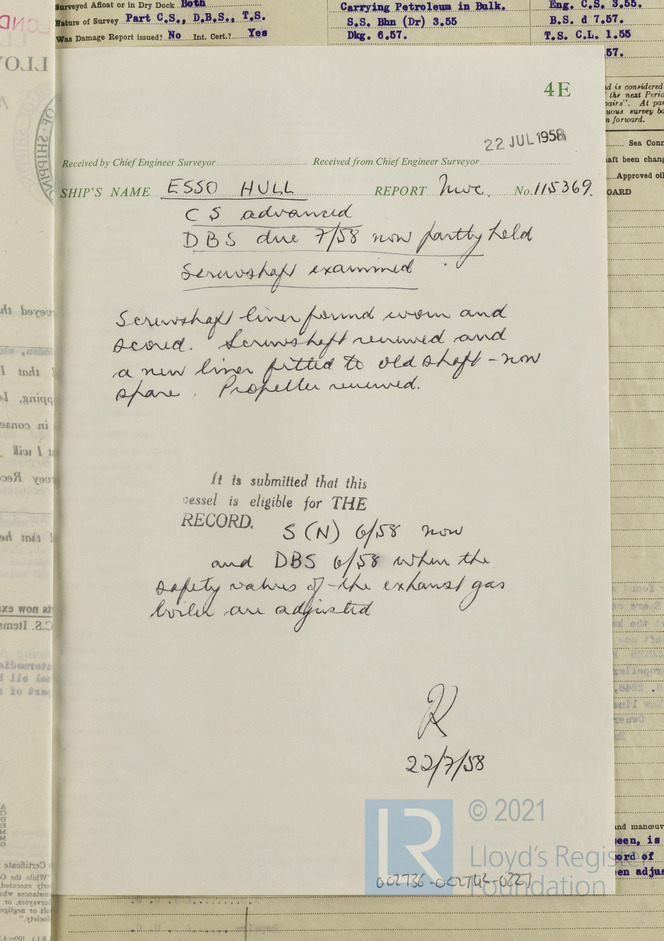 Surveyed Afloat or in Dry Dock Both
Nature of Survey Part C.S., D.B.S., T.S.
Was Damage Report issued? No Int. Cert.? Yes
Carrying Petroleum in Bulk.
S.S. Bhn (Dr) 3.55
Dkg. 6.57.
Eng. C.S. 3.55.
B.S. d 7.57.
T.S. C.L. 1.55
57.
4E
22 JUL 1958
Received by Chief Engineer Surveyor
Received from Chief Engineer Surveyor
SHIP'S NAME ESSO HULL REPORT Nwc. No. 115369.
CS advanced
DBS due 7/58 now partly held
Screwshaft examined
Screwshaft liner found worn and
scored. Screwshaft renewed and
a new liner fitted to old shaft - now
spare. Propeller renewed.
It is submitted that this
vessel is eligible for THE
RECORD. S(N) 6/58 now
and DBS 6/58 when the
safety valves of the exhaust gas
boiler are adjusted
22/7/58
LR
© 2021
Lloyd's Register
Foundation
002736-002742-0227